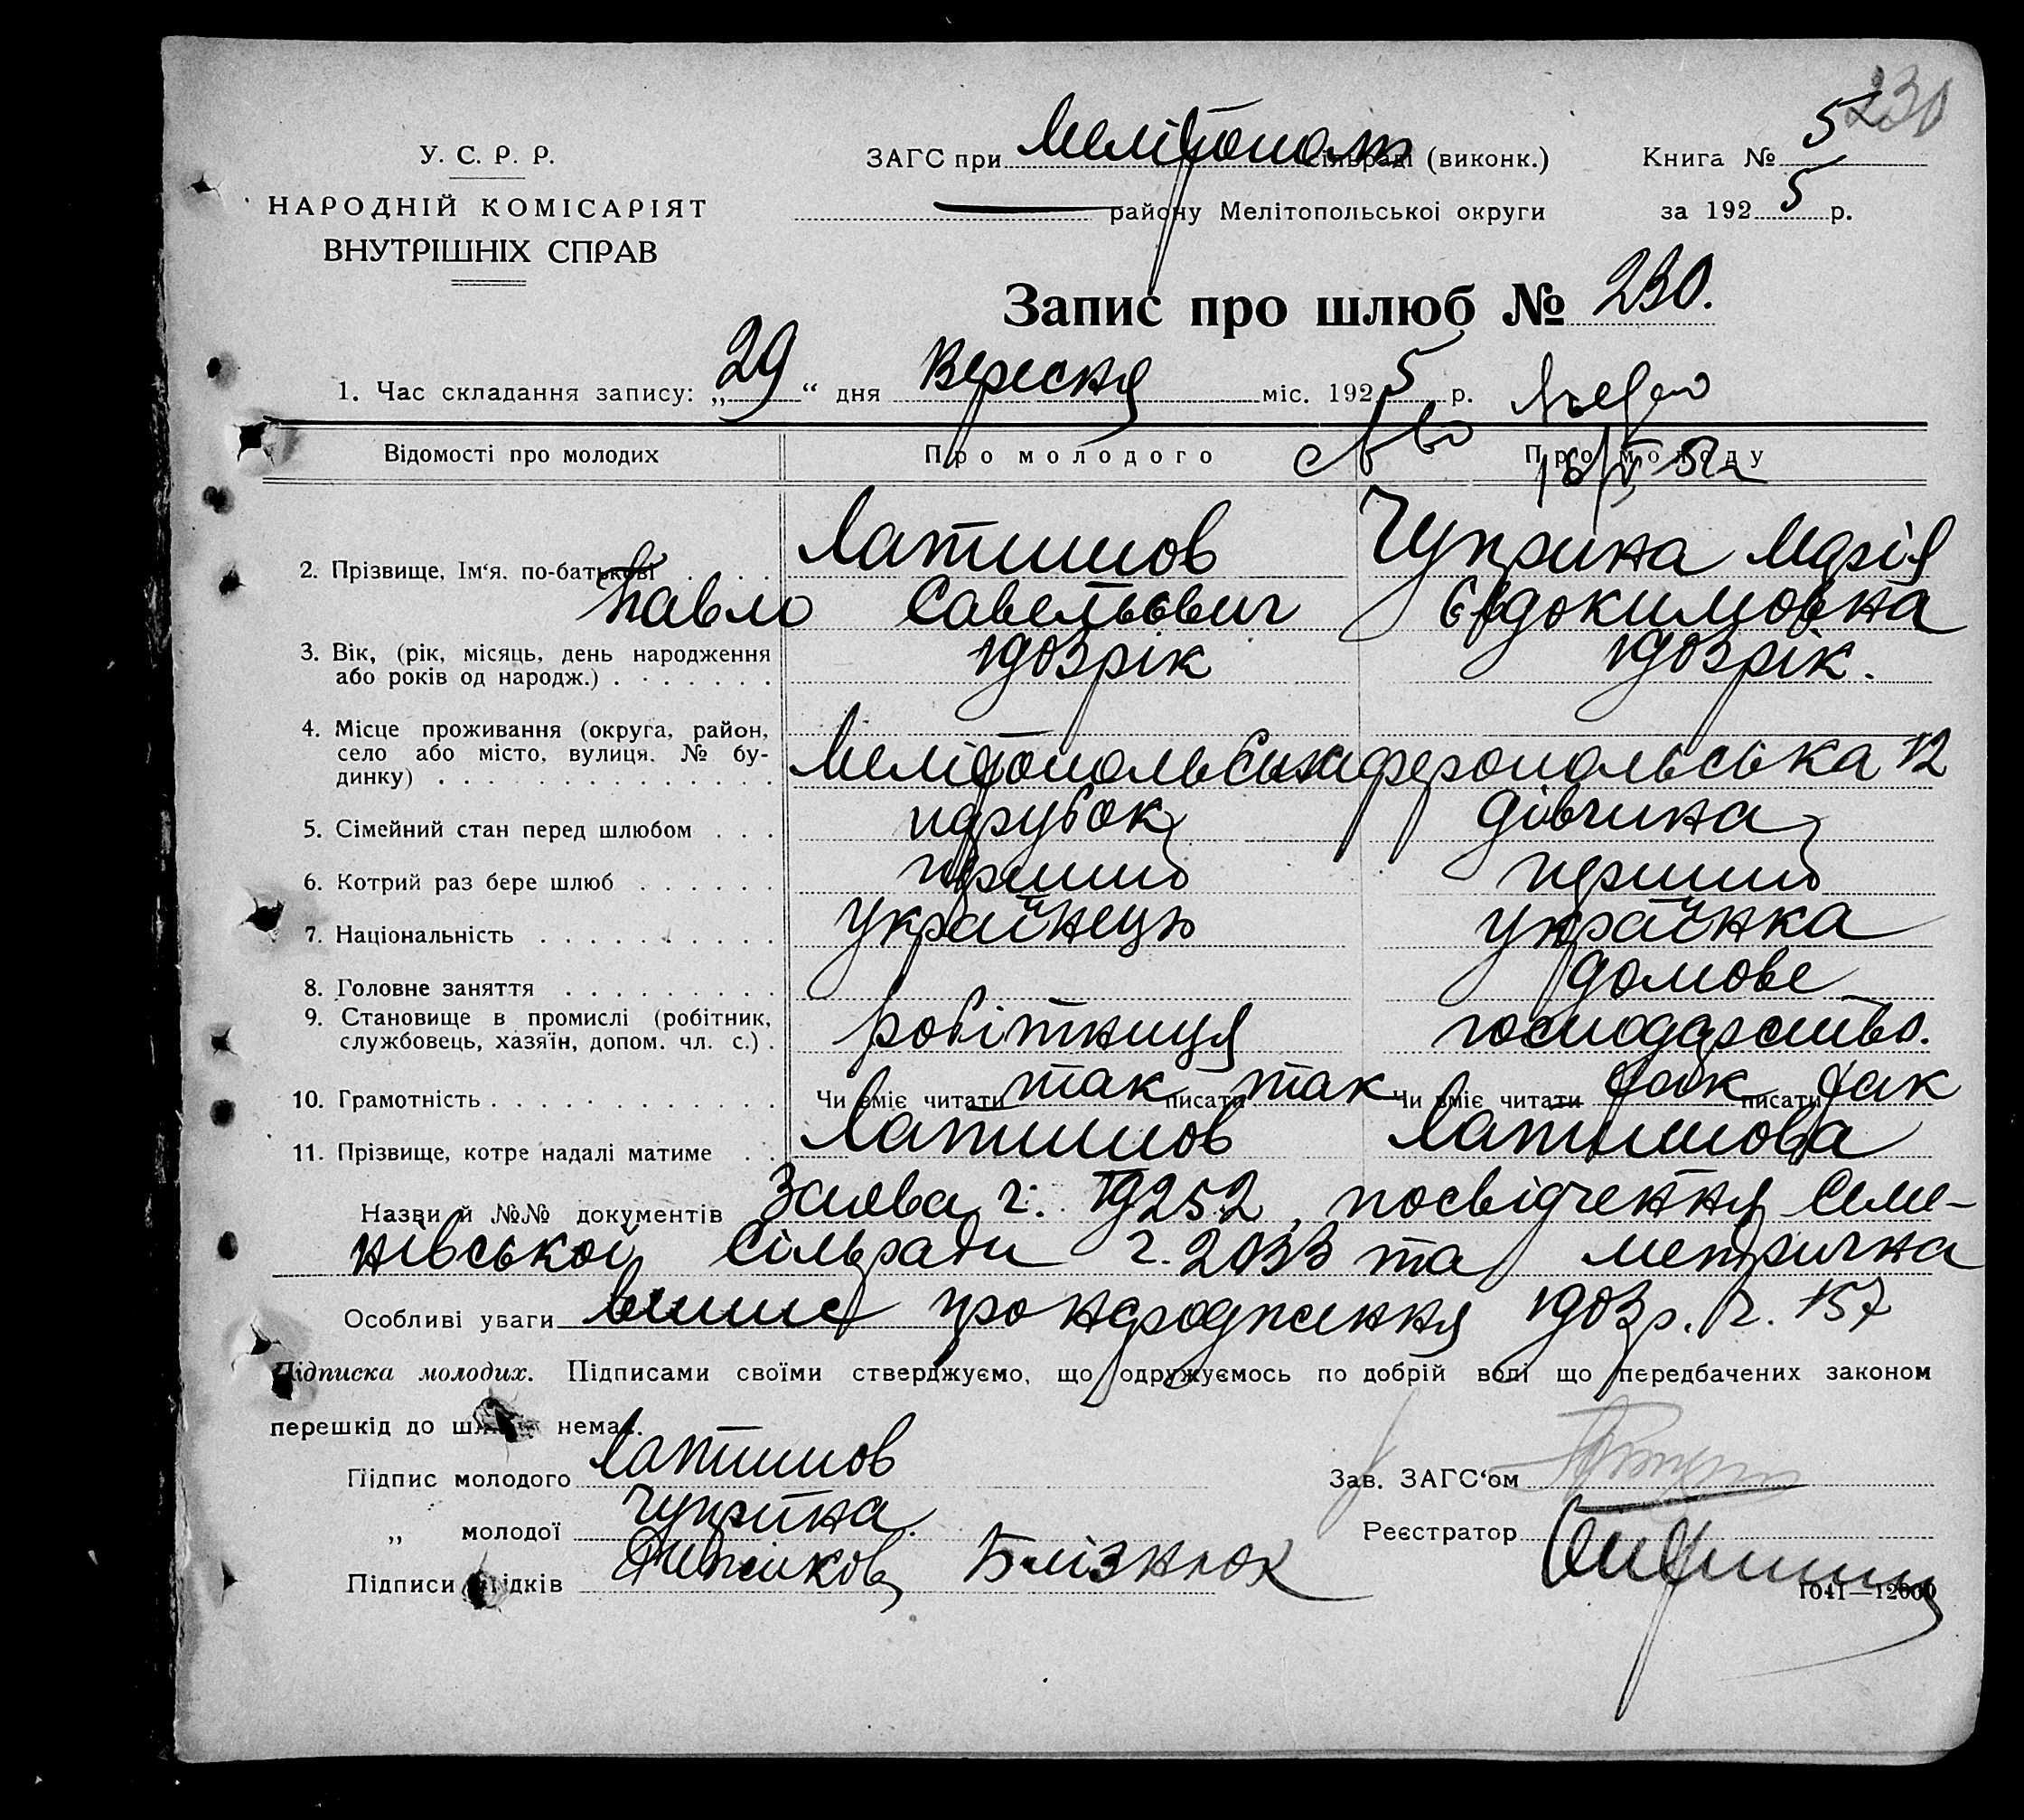 230
У. С. Р. Р.
НАРОДНІЙ КОМІСАРІЯТ
ВНУТРІШНІХ СПРАВ
ЗАГС при Мелітополі сільраді (виконк.)
Книга № 5
району Мелітопольської округи
за 1925 р.
Запис про шлюб № 230.
1. Час складання запису: „29“ дня Вересня міс. 1925 р.
Відомості про молодих
Про молодого
Про молоду
16/V 52
2. Прізвище, Ім‘я, по-батькові . . . Латишов Чуприна Марія
Павло Савельєвич Євдокимовна
3. Вік, (рік, місяць, день народження
або років од народж.) . . . . . . . 1903 рік 1903 рік.
4. Місце проживання (округа, район,
село або місто, вулиця. № бу-
динку) . . . . . . . . . . . . . Мелітополь Симферопольська 12
5. Сімейний стан перед шлюбом . . . парубок дівчина
6. Котрий раз бере шлюб . . . . . . перший перший
7. Національність . . . . . . . . . . українець українка
8. Головне заняття . . . . . . . . . домове
9. Становище в промислі (робітник,
службовець, хазяїн, допом. чл. с.) . робітниця господарство.
10. Грамотність . . . . . . . . . . . . Чи вміє читати так писати так Чи вміє читати так писати так
11. Прізвище, котре надалі матиме . . Латишов Латишова
Назви й №№ документів Заява ч. 19252, посвідчення Семе-
нівської Сільради ч. 2033 та метрична
Особливі уваги випис про народження 1903 р. ч. 157
Підписка молодих. Підписами своїми стверджуємо, що одружуємось по добрій волі що передбачених законом
перешкід до шлюбу немає.
Підпис молодого Латишов
Зав. ЗАГС‘ом
„ молодої Чуприна.
Реєстратор
Підписи свідків Блізнюк
1041—12000